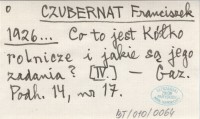 o
CZUBERNAT Franciszek
1926... Co to jest Kółko
rolnicze i jakie są jego
zadania? [IV.] — Gaz.
Podh. 14, nr 17.
BT/010/0064